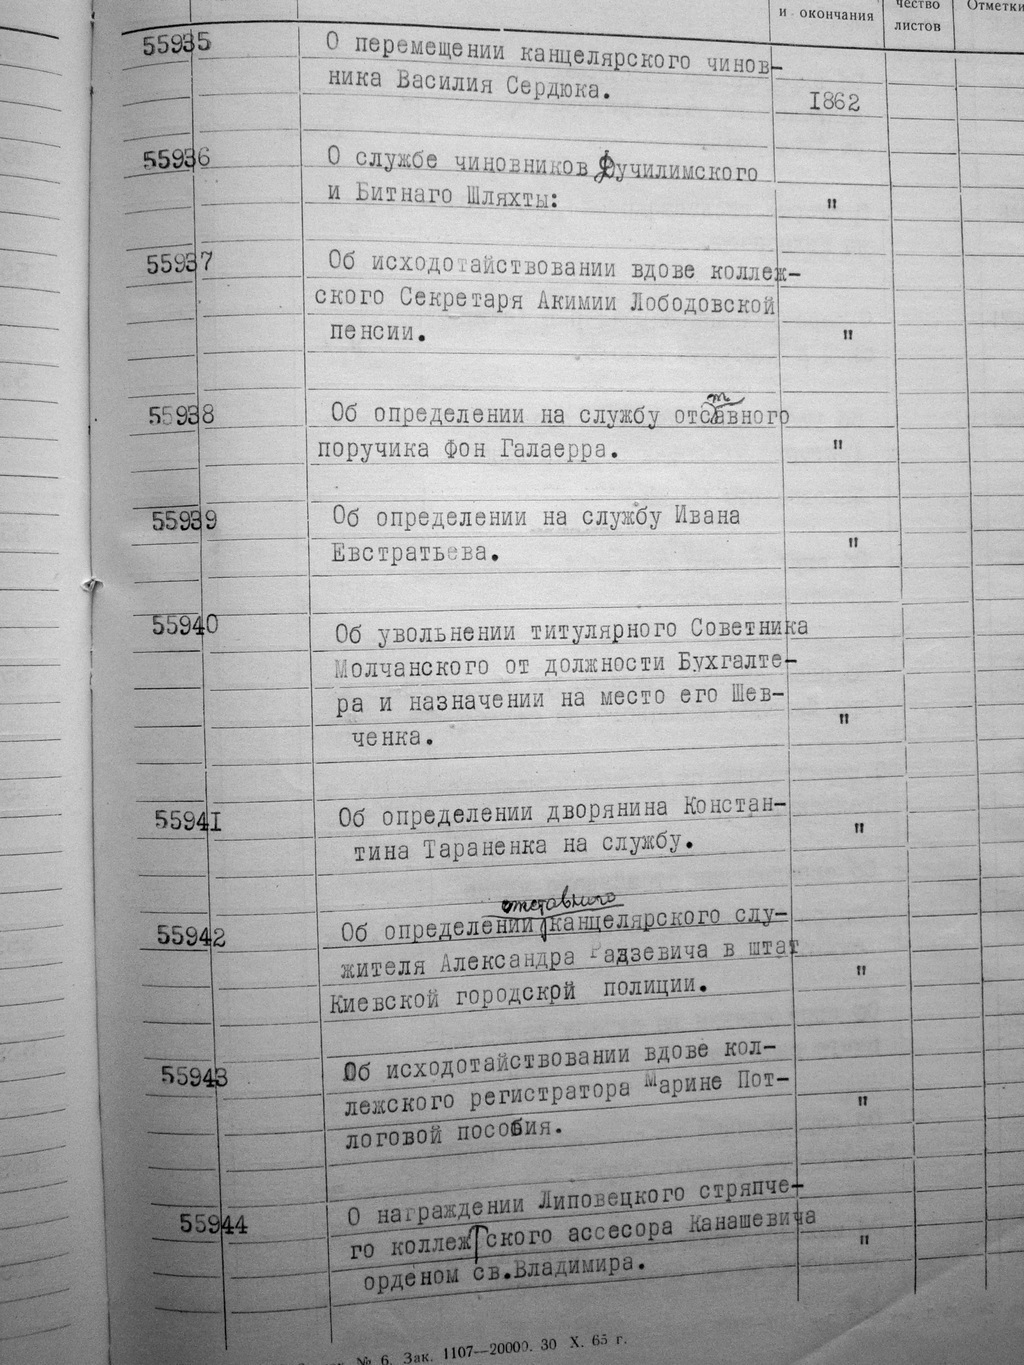 и окончания
чество
листов
Отметки
55935 О перемещении канцелярского чинов-
ника Василия Сердюка.
1862
55936 О службе чиновников Фучилимского
и Битнаго Шляхты: "
55937 Об исходотайствовании вдове коллеж-
ского Секретаря Акимии Лободовской
пенсии. "
55938 Об определении на службу отставного
поручика Фон Галаерра. "
55939 Об определении на службу Ивана
Евстратьева. "
55940 Об увольнении титулярного Советника
Молчанского от должности Бухгалте-
ра и назначении на место его Шев-
ченка. "
55941 Об определении дворянина Констан-
тина Тараненка на службу. "
отставного
55942 Об определении канцелярского слу-
жителя Александра Радзевича в штат
Киевской городской полиции. "
55943 Об исходотайствовании вдове кол-
лежского регистратора Марине Пот-
логовой пособия. "
55944 О награждении Липовецкого стряпче-
го коллежского ассесора Канашевича
орденом св.Владимира. "
№ 6. Зак. 1107—20000. 30 X. 65 г.